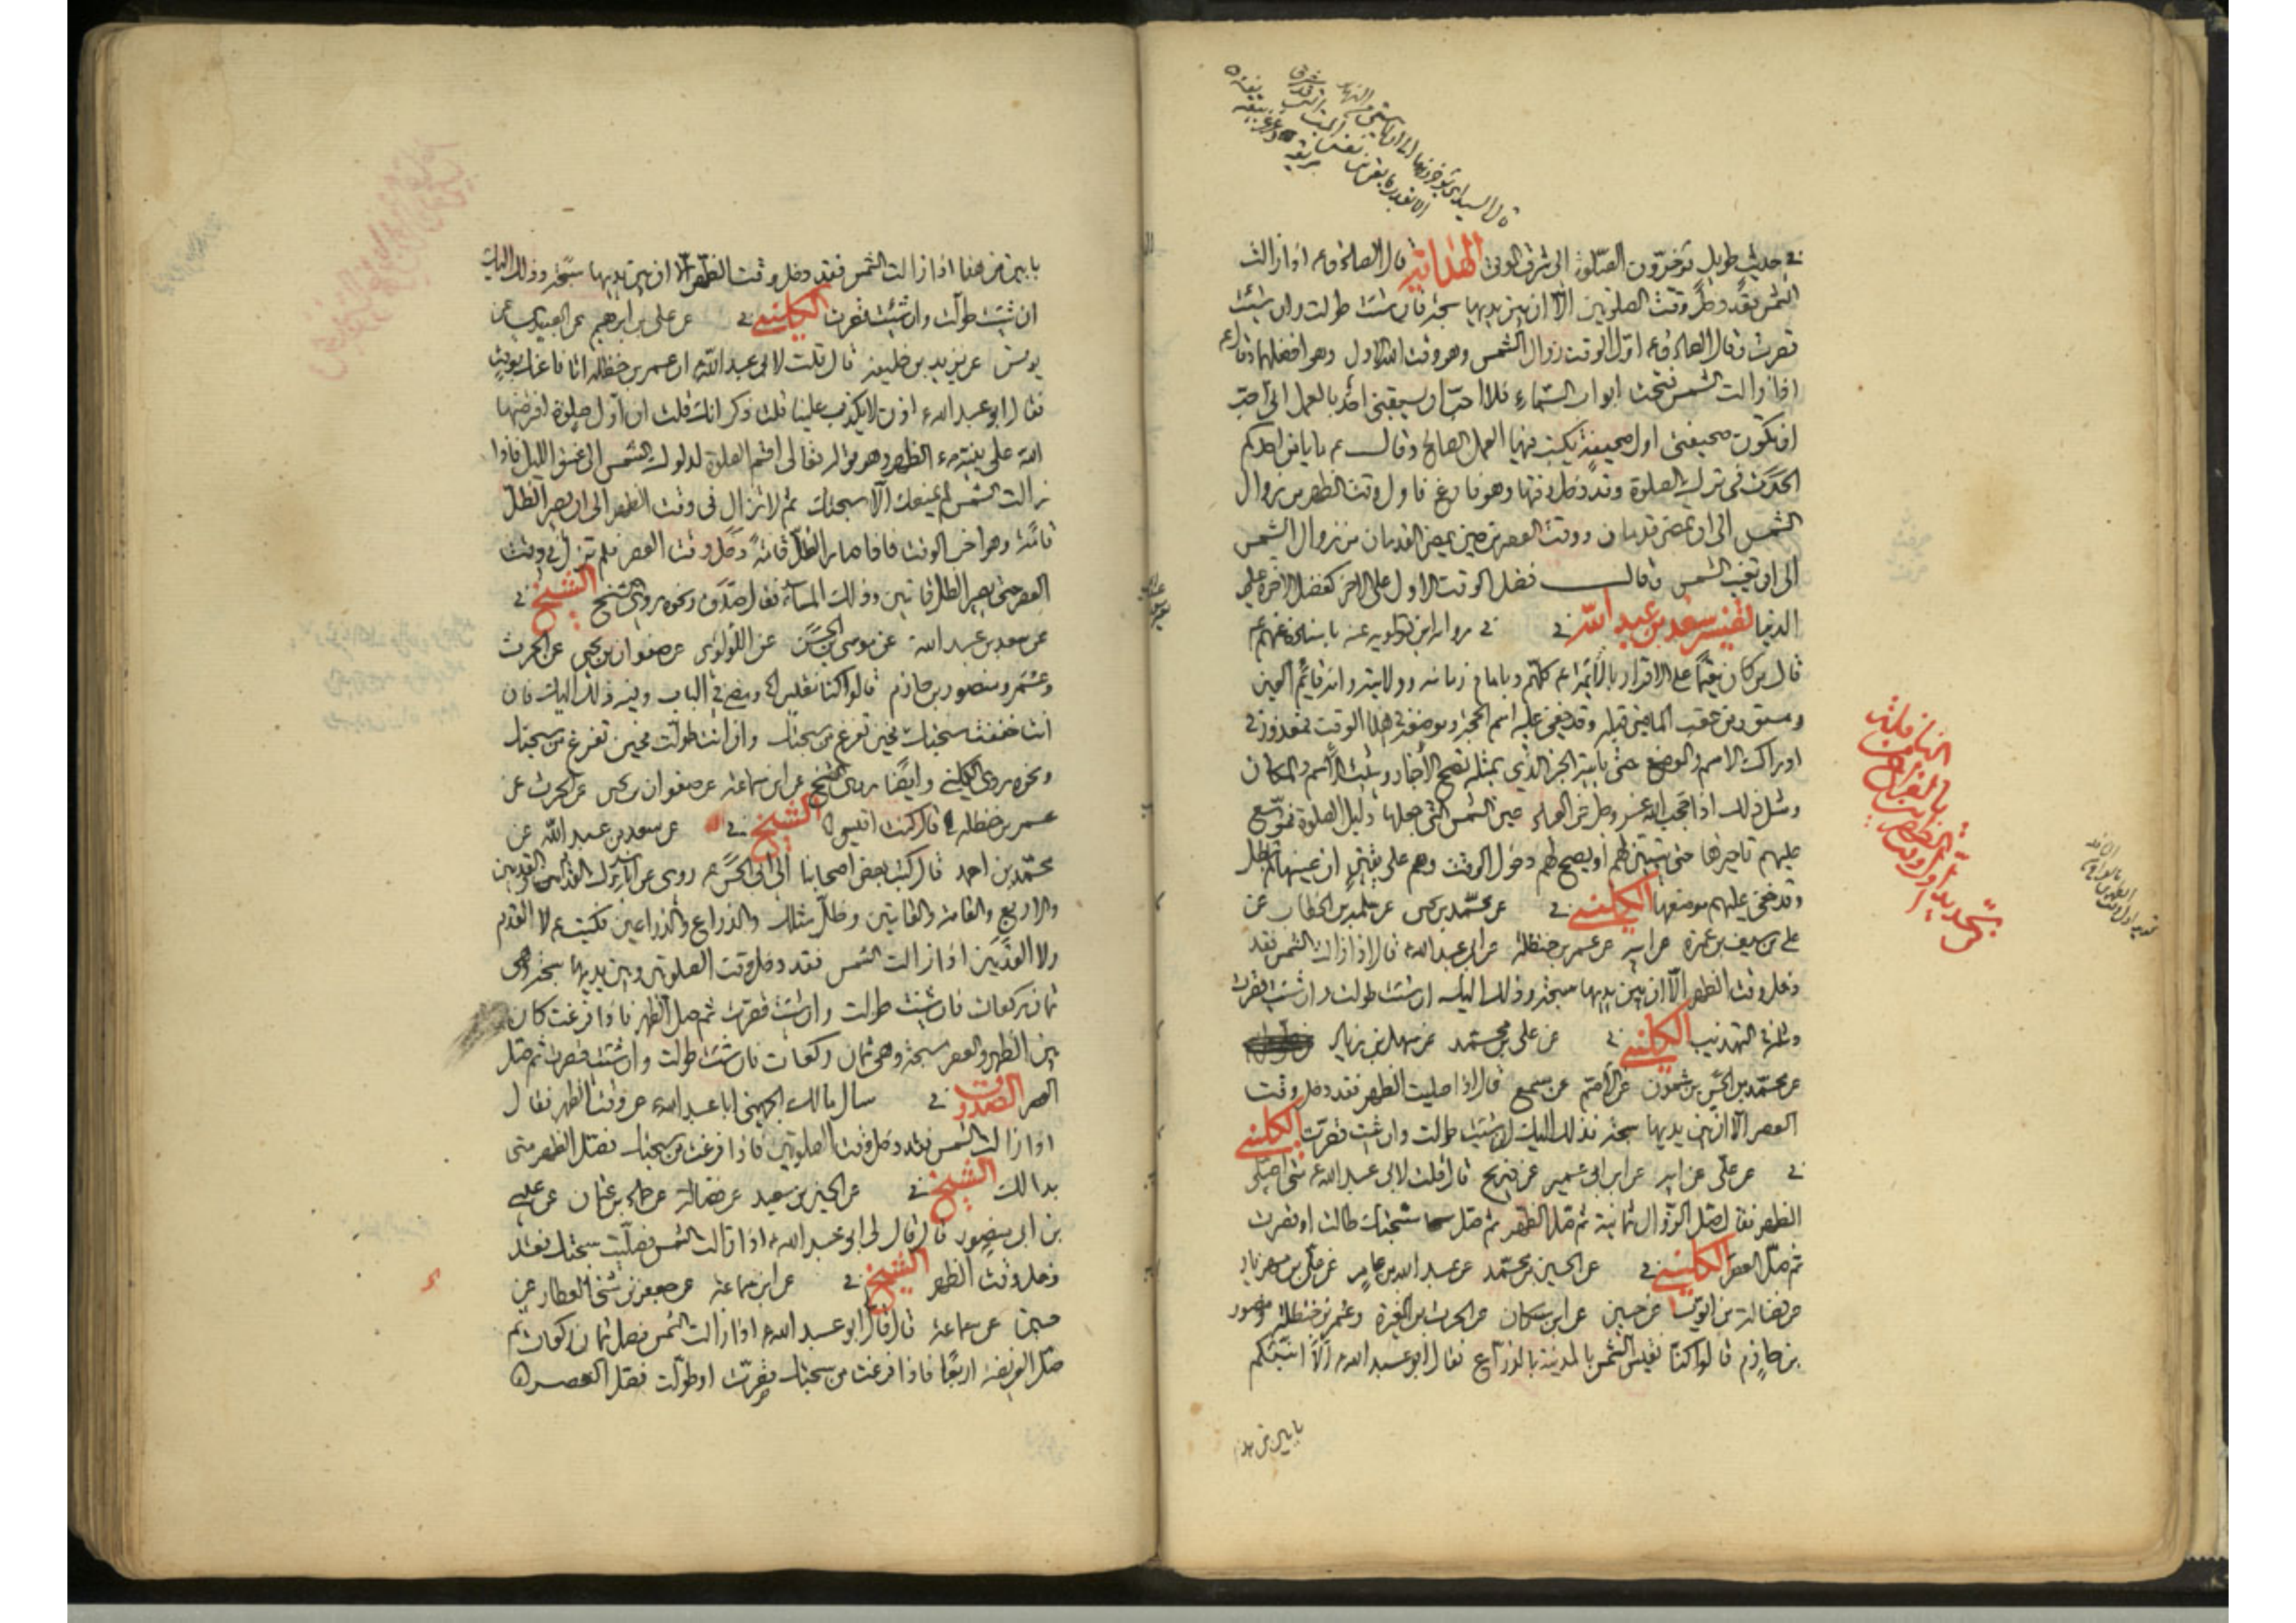 في حديث طويل تؤخرون الصلوة الى شرق الموتى الهداية قال الصادق ع اذا زالت
الشمس فقد دخل وقت الصلوتين الا ان بين يديها سبحة فان شئت طولت وان شئت
قصرت وقال الصادق ع اول الوقت زوال الشمس وهو وقت الله الاول وهو افضلهما وقال ع
اذا زالت الشمس فتحت ابواب السماء فلا احب ان يسبقني احد بالعمل اني احب
ان تكون صحيفتي اول صحيفة يكتب فيها العمل الصالح وقال ع ما يامن احدكم
الحدث في ترك الصلوة وقد دخل وقتها وهو فارغ فاول وقت الظهر من زوال
الشمس الى ان يمضي قدمان ووقت العصر من حين يمضي القدمان من زوال الشمس
الى ان تغيب الشمس وقال فضل الوقت الاول على الاخر كفضل الاخرة على
الدنيا تفسير سعد بن عبد الله في رواية ابن قولويه عنه باسناده عنهم ع
قال من كان مقيما على الاقرار بالائمة ع كلهم وبامام زمانه وولايته وانه قائم العين
ومستور من عقب الماضي قبله وقد خفي عليه اسم الحجة وموضعه في هذا الوقت فمعذور في
ادراك الاسم والموضع حتى ياتيه الخبر الذي بمثله تصح الاخبار ويثبت الاسم والمكان
ومثل ذلك اذا حجب الله عز وجل عن العباد عين الشمس التي جعلها دليل الصلوة فموسع
عليهم تاخيرها حتى يتبين لهم او يصح لهم دخول الوقت وهم على يقين ان عينها لم تبطل
وقد خفي عليهم موضعها الكليني في عن محمد بن يحيى عن سلمة بن الخطاب عن
علي بن سيف بن عميرة عن ابيه عن عمر بن حنظلة عن ابي عبد الله ع قال اذا زالت الشمس فقد
دخل وقت الظهر الا ان بين يديها سبحة وذلك اليك ان شئت طولت وان شئت قصرت
ومثله في التهذيب الكليني في عن علي بن محمد عن سهل بن زياد
عن محمد بن الحسن بن شمون عن الاصم عن مسمع قال اذا صليت الظهر فقد دخل وقت
العصر الا ان بين يديها سبحة فذلك اليك ان شئت طولت وان شئت قصرت الكليني
في عن علي عن ابيه عن ابن ابي عمير عن ذريح قال قلت لابي عبد الله ع متى اصلي
الظهر فقال صل الزوال ثمانية ثم صل الظهر ثم صل سبحتك طالت او قصرت
ثم صل العصر الكليني في عن الحسين بن محمد عن عبد الله بن عامر عن علي بن مهزيار
عن فضالة بن ايوب عن حسين عن ابن مسكان عن الحرث بن المغيرة وعمر بن حنظلة ومنصور
بن حازم قالوا كنا نقيس الشمس بالمدينة بالذراع فقال ابو عبد الله ع الا انبئكم
بابين من هذا
النافلة
بالفرائض
تحديد اول وقت
بابين من هذا اذا زالت الشمس فقد دخل وقت الظهر الا ان بين يديها سبحة وذلك اليك
ان شئت طولت وان شئت قصرت الكليني في عن علي بن ابرهيم عن العبيدي عن
يونس عن يزيد بن خليفة قال قلت لابي عبد الله ع ان عمر بن حنظلة اتانا عنك بوقت
فقال ابو عبد الله ع اذن لا يكذب علينا قلت ذكر انك قلت ان اول صلوة افترضها
الله على نبيه ص الظهر وهو قوله تعالى اقم الصلوة لدلوك الشمس الى غسق الليل فاذا
زالت الشمس لم يمنعك الا سبحتك ثم لا تزال في وقت الظهر الى ان يصير الظل
قامة وهو اخر الوقت فاذا صار الظل قامة دخل وقت العصر فلم تزل في وقت
العصر حتى يصير الظل قامتين وذلك المساء فقال صدق ونحوه روى الشيخ الشيخ في
عن سعد بن عبد الله عن موسى بن الحسن عن اللؤلؤي عن صفوان بن يحيى عن الحرث
وعمر ومنصور بن حازم قالوا كنا نقيس الخ وفي الباب وفيه ذلك اليك فان
انت خففت سبحتك فحين تفرغ من سبحتك وان انت طولت فحين تفرغ من سبحتك
ونحوه روى الكليني وايضا روى الشيخ عن ابن سماعة عن صفوان بن يحيى عن الحرث عن
عمر بن حنظلة قال كنت اقيس الشيخ في عن سعد بن عبد الله عن
محمد بن احمد قال كتب بعض اصحابنا الى ابي الحسن ع روى عن ابائك القدم والقدمين
والاربع والقامة والقامتين وظل مثلك والذراع والذراعين فكتب ع لا القدم
ولا القدمين اذا زالت الشمس فقد دخل وقت الصلوتين وبين يديها سبحة وهي
ثمان ركعات فان شئت طولت وان شئت قصرت ثم صل الظهر فاذا فرغت كان
بين الظهر والعصر سبحة وهي ثمان ركعات فان شئت طولت وان شئت قصرت ثم صل
العصر الصدوق في سال مالك الجهني ابا عبد الله ع عن وقت الظهر فقال
اذا زالت الشمس فقد دخل وقت الصلوتين فاذا فرغت من سبحتك فصل الظهر متى
بدا لك الشيخ في عن الحسين بن سعيد عن فضالة عن حماد بن عثمان عن عيسى
بن ابي منصور قال قال لي ابو عبد الله ع اذا زالت الشمس فصليت سبحتك فقد
دخل وقت الظهر الشيخ في عن ابن سماعة عن جعفر بن مثنى العطار عن
حسين عن سماعة قال قال ابو عبد الله ع اذا زالت الشمس فصل ثمان ركعات ثم
صل الفريضة اربعا فاذا فرغت من سبحتك قصرت او طولت فصل العصر